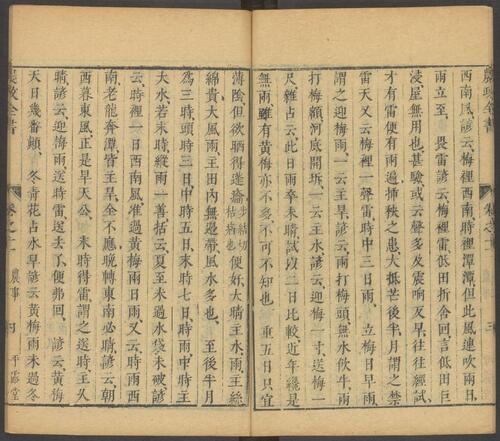 農政全書
西南風諺云梅裡西南時裡潭潭但此風連吹兩日
雨立至 畏雷諺云梅裡雷低田折舍回言低田巨
浸屋無用也甚驗或云聲多及震响反旱往往經試
才有雷便有雨遍挿秧之患大抵芒後半月謂之禁
雷天又云梅裡一聲雷時中三日雨 立梅日早雨
謂之迎梅雨一云主旱諺云雨打梅頭無水飲牛雨
打梅額河底開坼一云主水諺云迎梅一寸送梅一
尺雜占云此日雨卒未晴試以二日比較近年纔是
無雨雖有黃梅亦不多不可不知也 重五日只宜
薄陰但欲晒得蓬
便好大晴主水雨主絲
綿貴大風雨主田內無邊帶風水多也至後半月
為三時頭時三日中時五日末時七日時雨中時主
大水若末時縱雨一善括云夏至未過水袋未破諺
云時裡一日西南風准過黃梅兩日雨又云時雨西
南老龍奔潭皆主旱全不應晩轉東南必晴諺云朝
西暮東風正是旱天公 末時得雷謂之送時主久
晴諺云迎梅雨送時雷送去了便弗回 諺云黃梅
天日幾番顛 冬青花占水旱諺云黃梅雨未過冬
農政全書
卷之十一
農事
四
平露堂